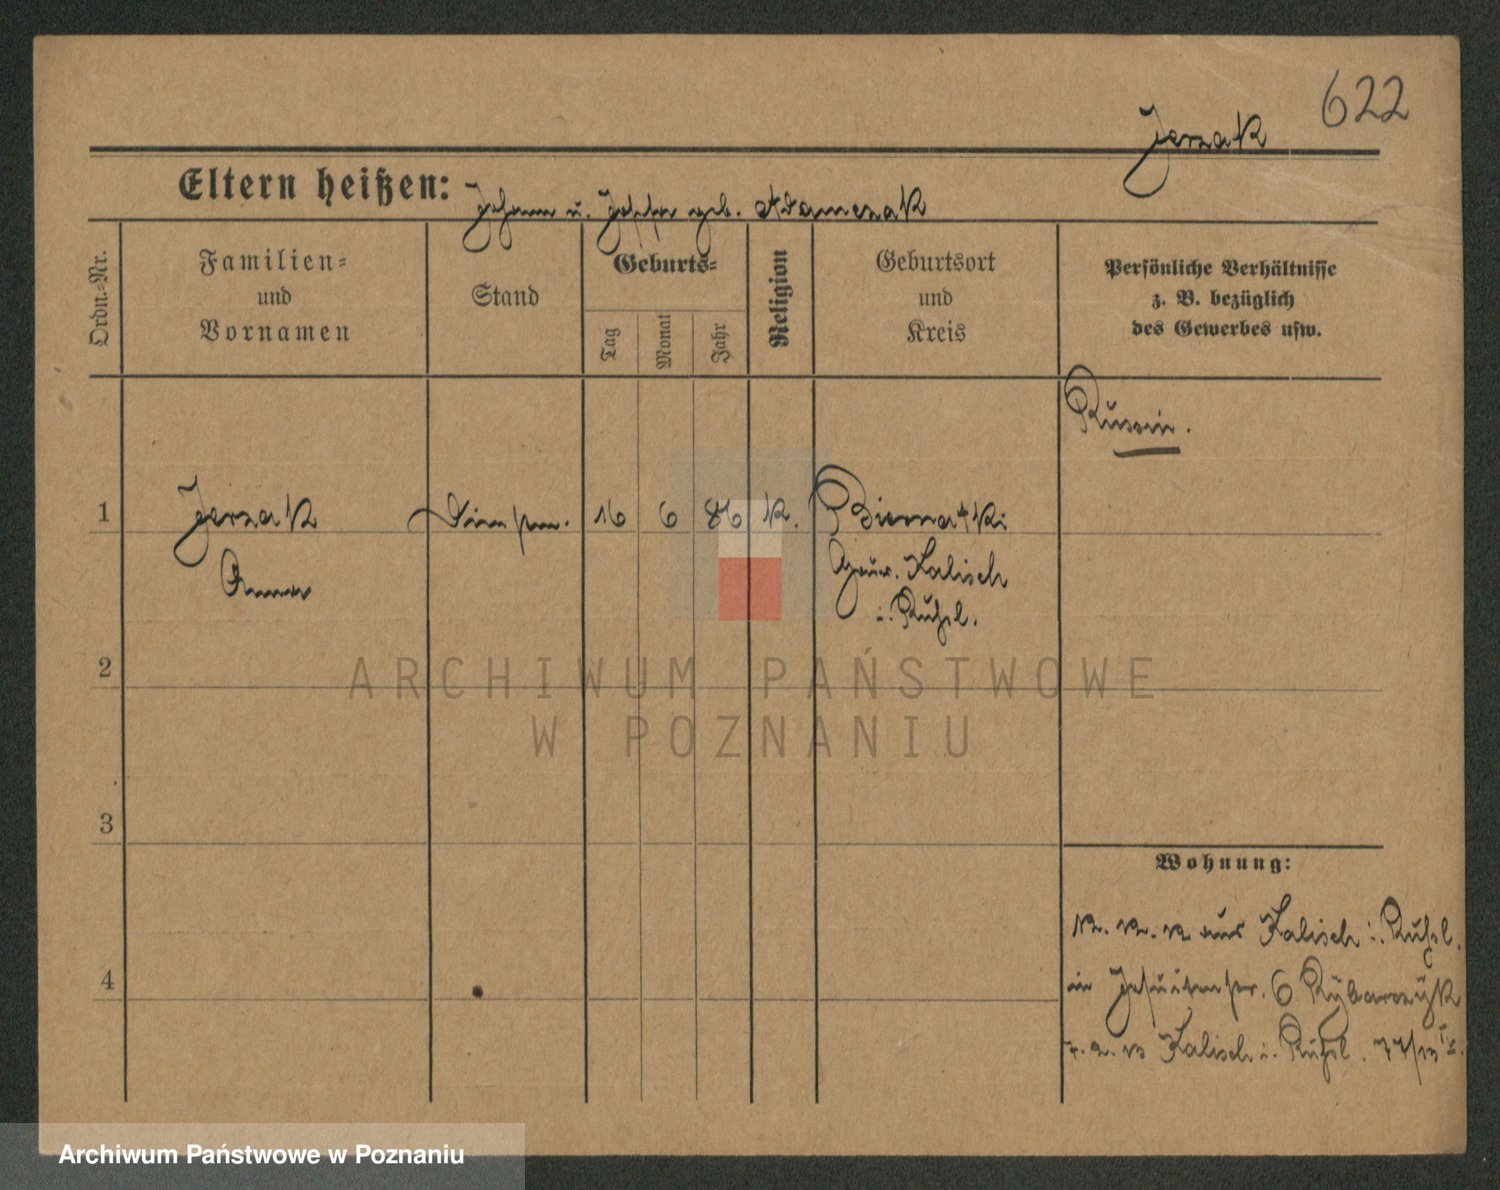 622
Jerzak
Eltern heißen: Johann u. Josefa geb. Adamczak
Ordn.-Nr.
Familien-
und
Vornamen
Stand
Geburts-
Tag
Monat
Jahr
Religion
Geburtsort
und
Kreis
Persönliche Verhältnisse
z. B. bezüglich
des Gewerbes usw.
Russin.
1 Jerzak 16 6 86 k. Biernatki
Anna
Gouv. Kalisch
i. Rußl.
2
3
4
Wohnung:
aus Kalisch i. Rußl.
in Jesuitenstr. 6 Rybarczyk
Kalisch i. Rußl.
ARCHIWUM PAŃSTWOWE
W POZNANIU
Archiwum Państwowe w Poznaniu